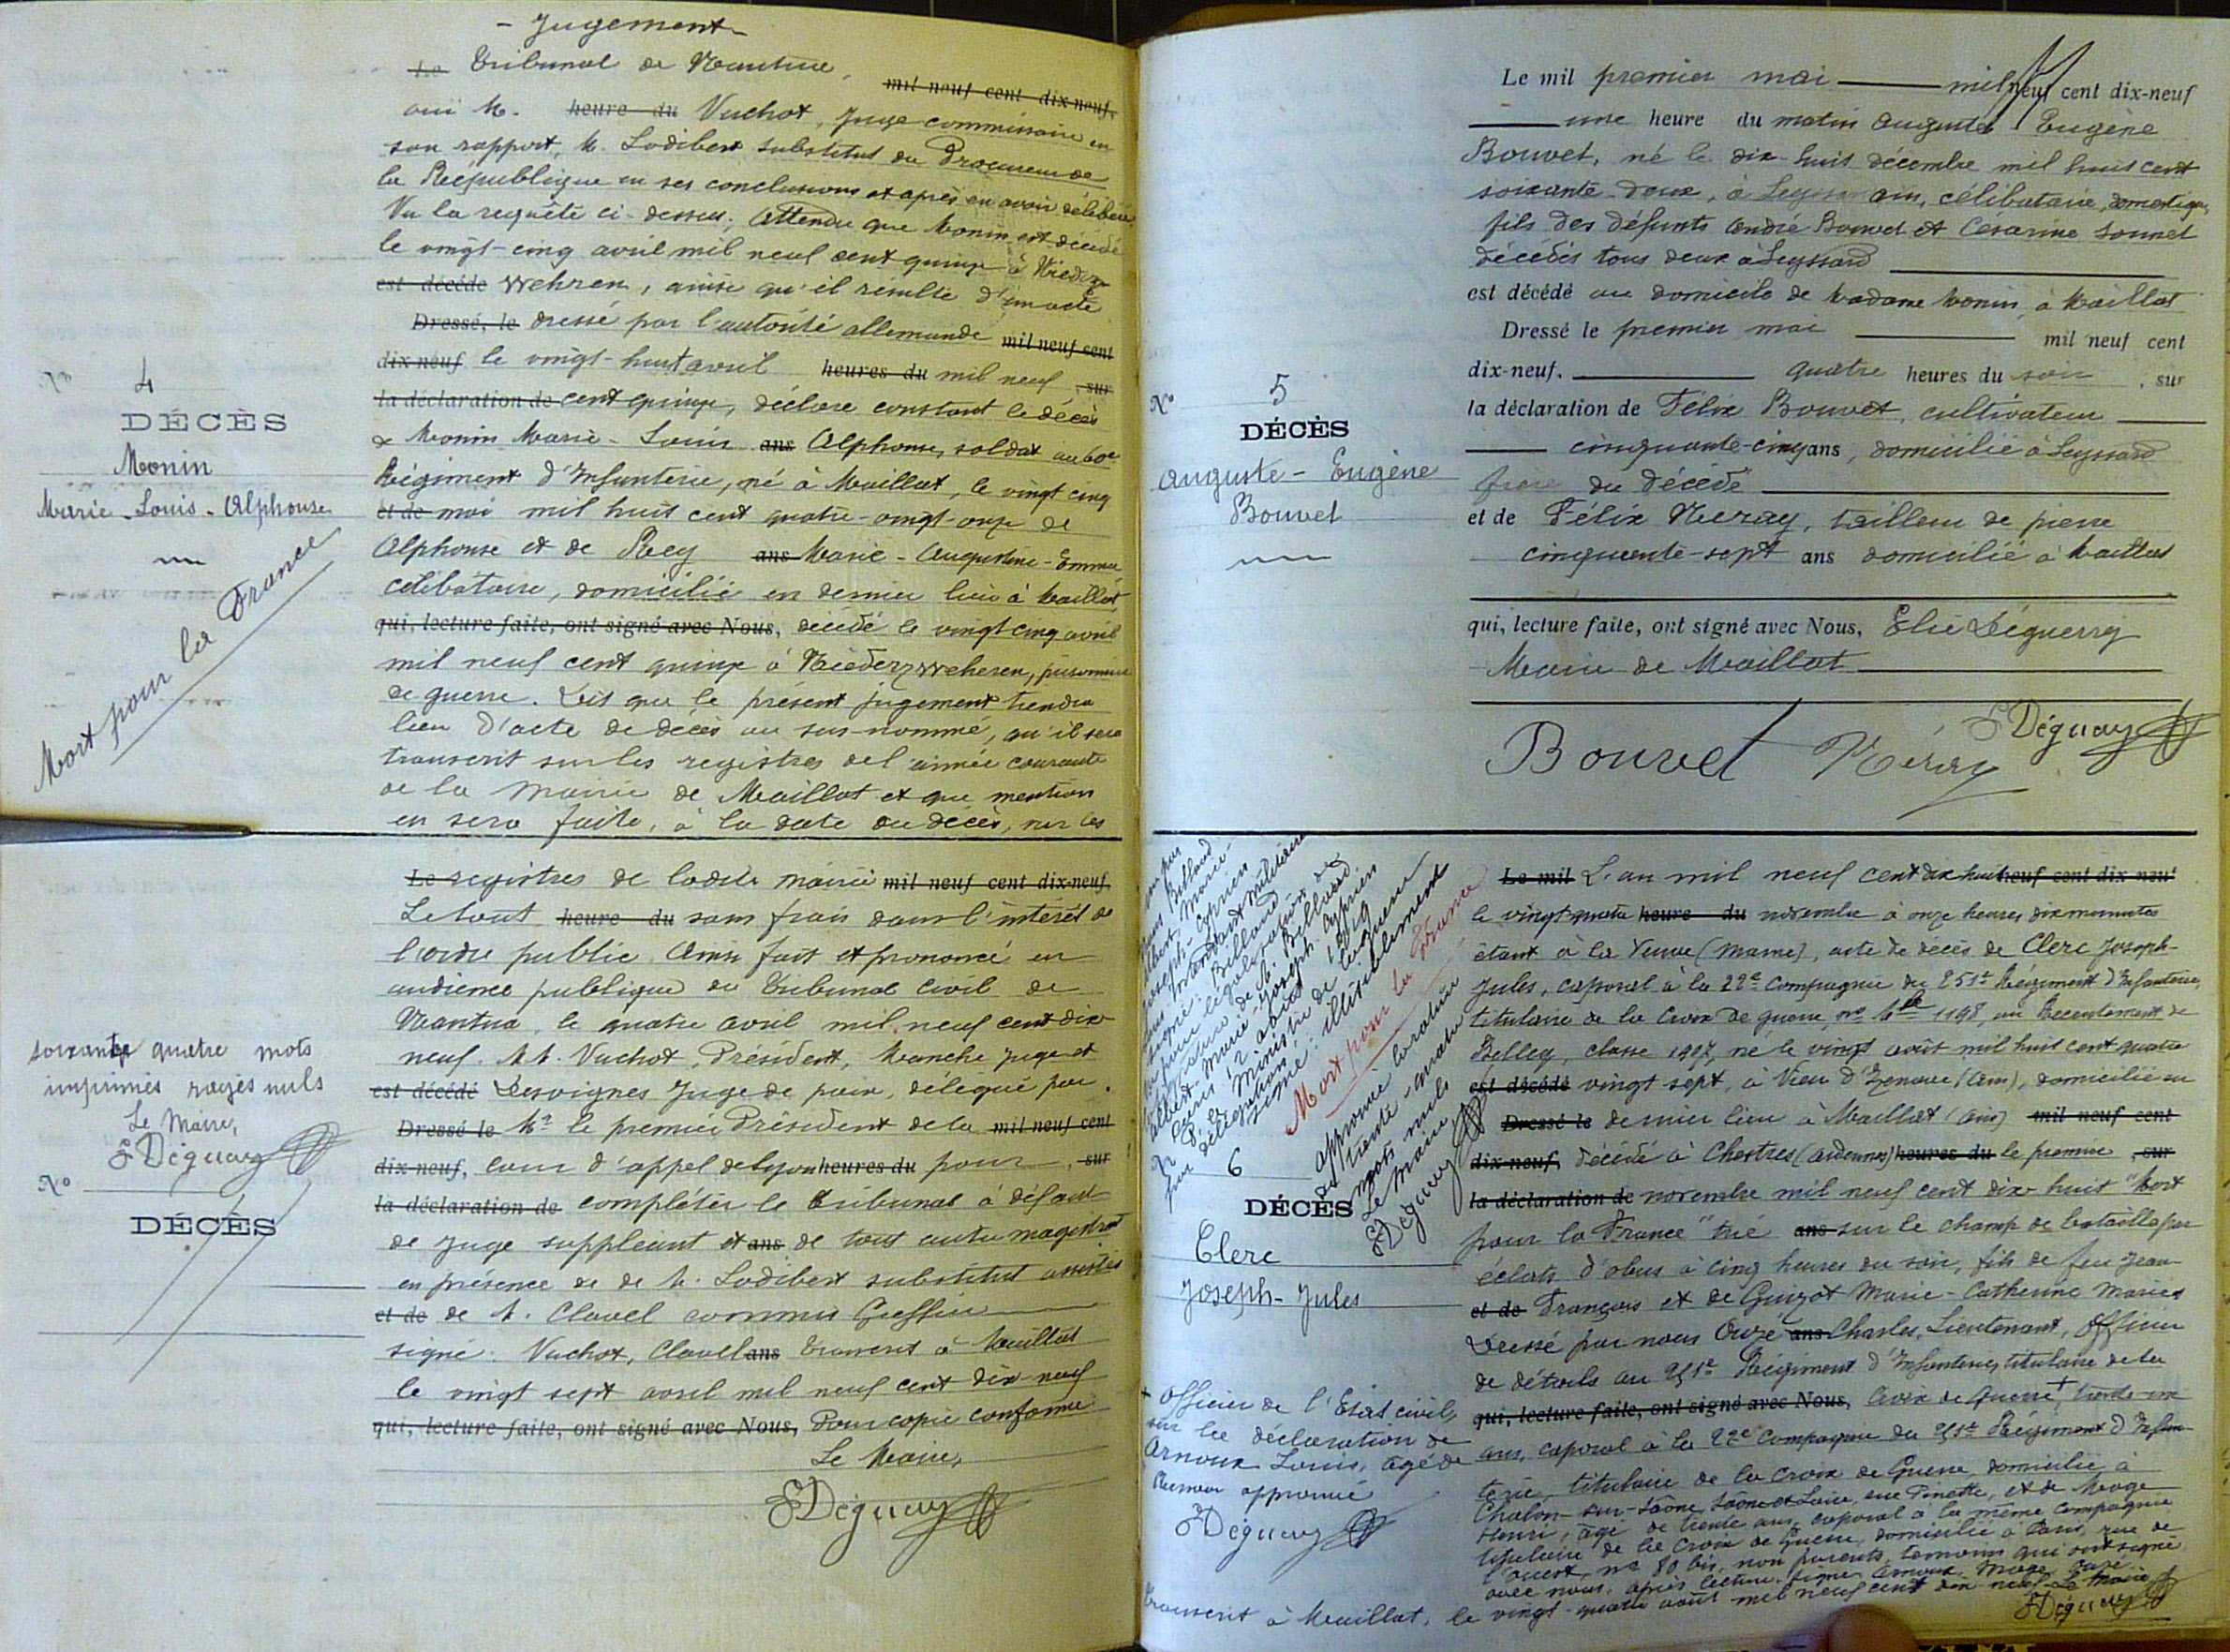 - Jugement -
Le Tribunal de Nantua, mil neuf cent dix-neuf.
oui M. heure du Vuchot, Juge commissaire en
son rapport, M. Lodibert substitut du Procureur de
la République en ses conclusions et après en avoir délibéré
Vu la requête ci-dessus, Attendu que Monin est décédé
le vingt-cinq avril mil neuf cent quinze à Nieder
est décédé zwehren, ainsi qu'il résulte d'un acte
Dressé, le dressé par l'autorité allemande mil neuf cent
dix-neuf le vingt-huit avril heures du mil neuf , sur
la déclaration de cent quinze, déclare constant le décès
de Monin Marie-Louis ans Alphonse, soldat au 60e
Régiment d'Infanterie, né à Maillat, le vingt cinq
et de mai mil huit cent quatre-vingt-onze de
Alphonse et de Rey ans Marie-Augustine-Emma
célibataire, domicilié en dernier lieu à Maillat,
qui, lecture faite, ont signé avec Nous, décédé le vingt cinq avril
mil neuf cent quinze à Niederzwehren, prisonnier
de guerre. Dit que le présent jugement tiendra
lieu d'acte de décès au sus-nommé, qu'il sera
transcrit sur les registres de l'année courante
de la Mairie de Maillat et que mention
en sera faite, à la date du décès, sur les
N° 4
DÉCÈS
Monin
Marie-Louis-Alphonse
Mort pour la France
Le registres de ladite mairie mil neuf cent dix-neuf.
Le tout heure du sans frais dans l'intérêt de
l'ordre public. Ainsi fait et prononcé en
audience publique du Tribunal Civil de
Nantua, le quatre avril mil neuf cent dix
neuf. M.M. Vuchot, Président, Manche juge et
est décédé Desvignes Juge de paix, délégué par
Dressé le Mr le premier Président de la mil neuf cent
dix-neuf, cour d'appel de Lyon heures du pour , sur
la déclaration de compléter le tribunal à défaut
de juge suppléant et ans de tout autre magistrat
en présence de de M. Lodibert substitut assistés
et de de M. Clavel commis Greffier
signé: Vuchot, Clavel ans Transcrit à Maillat
le vingt sept avril mil neuf cent dix-neuf
qui, lecture faite, ont signé avec Nous, Pour copie conforme
Le Maire,
E Déguerry
soixante quatre mots
imprimés rayés nuls
Le Maire,
E Déguerry
N°
DÉCÈS
Le mil premier mai mil neuf cent dix-neuf
une heure du matin Auguste Eugène
Bouvet, né le dix-huit décembre mil huit cent
soixante-deux, à Leyssard Ain, célibataire, domestique,
fils des défunts André Bouvet et Césarine
décédés tous deux à Leyssard
est décédé au domicile de Madame Monin, à Maillat
Dressé le premier mai mil neuf cent
dix-neuf. quatre heures du soir , sur
la déclaration de Félix Bouvet, cultivateur
cinquante-cinq ans, domicilié à Leyssard
frère du décédé
et de Félix Neray, tailleur de pierre
cinquante-sept ans domicilié à Maillat
qui, lecture faite, ont signé avec Nous, Elie Déguerry
Maire de Maillat
E Déguerry
Bouvet Néray
N° 5
DÉCÈS
Auguste-Eugène
Bouvet
Le mil L'an mil neuf cent dix huit neuf cent dix-neuf
le vingt quatre heure du novembre à onze heures dix minutes
étant à la Veuve (Marne), acte de décès de Clerc Joseph-
Jules, caporal à la 22e Compagnie du 251e Régiment d'Infanterie,
titulaire de la Croix de guerre, no Mle 1198, au Recrutement de
Belley, classe 1907, né le vingt août mil huit cent quatre
est décédé vingt sept, à Vieu d'Izenave (Ain), domicilié en
Dressé le dernier lieu à Maillat (Ain) mil neuf cent
dix-neuf, décédé à Chestres (Ardennes) heures du le premier , sur
la déclaration de novembre mil neuf cent dix-huit "Mort
pour la France" tué ans sur le champ de bataille par
éclats d'obus à cinq heures du soir, fils de feu Jean-
et de François et de Guizot Marie-Catherine mariés
Dressé par nous Ouzé ans Charles, Lieutenant, Officier
de détails au 251e Régiment d'Infanterie, titulaire de la
qui, lecture faite, ont signé avec Nous, Croix de Guerre + trente un
ans, caporal à la 22e Compagnie du 251e Régiment d'Infan-
terie, titulaire de la croix de Guerre domicilié à
Chalon-sur-Saône, Saône et Loire, rue Pinette, et de Moge
Henri, âgé de trente ans, caporal à la même Compagnie
titulaire de la Croix de Guerre, domicilié à Paris, rue de
l'ouest, no 80 bis, non parents, témoins qui ont signé
avec nous, après lecture. signé Arnoux, Moge, Ouzé.
Transcrit à Maillat, le vingt-quatre août mil neuf cent dix-neuf Le Maire
E Déguerry
Vu par
Billaud
Albert, Marie-
Joseph-Cyprien
Sous Intendant militaire
signé: Billaud
Vu pour légalisation de
la signature de M. Billaud
Albert-Marie-Joseph-Cyprien
août 1919
P. le Ministre de la guerre
par délégation
signé: illisiblement
Mort pour la France
approuvé la rature
de trente-quatre
mots nuls
Le Maire
E Déguerry
N° 6
DÉCÈS
Clerc
Joseph-Jules
+ Officier de l'Etat civil,
sur la déclaration de
Arnoux Louis, âgé de
Renvoi approuvé
E Déguerry